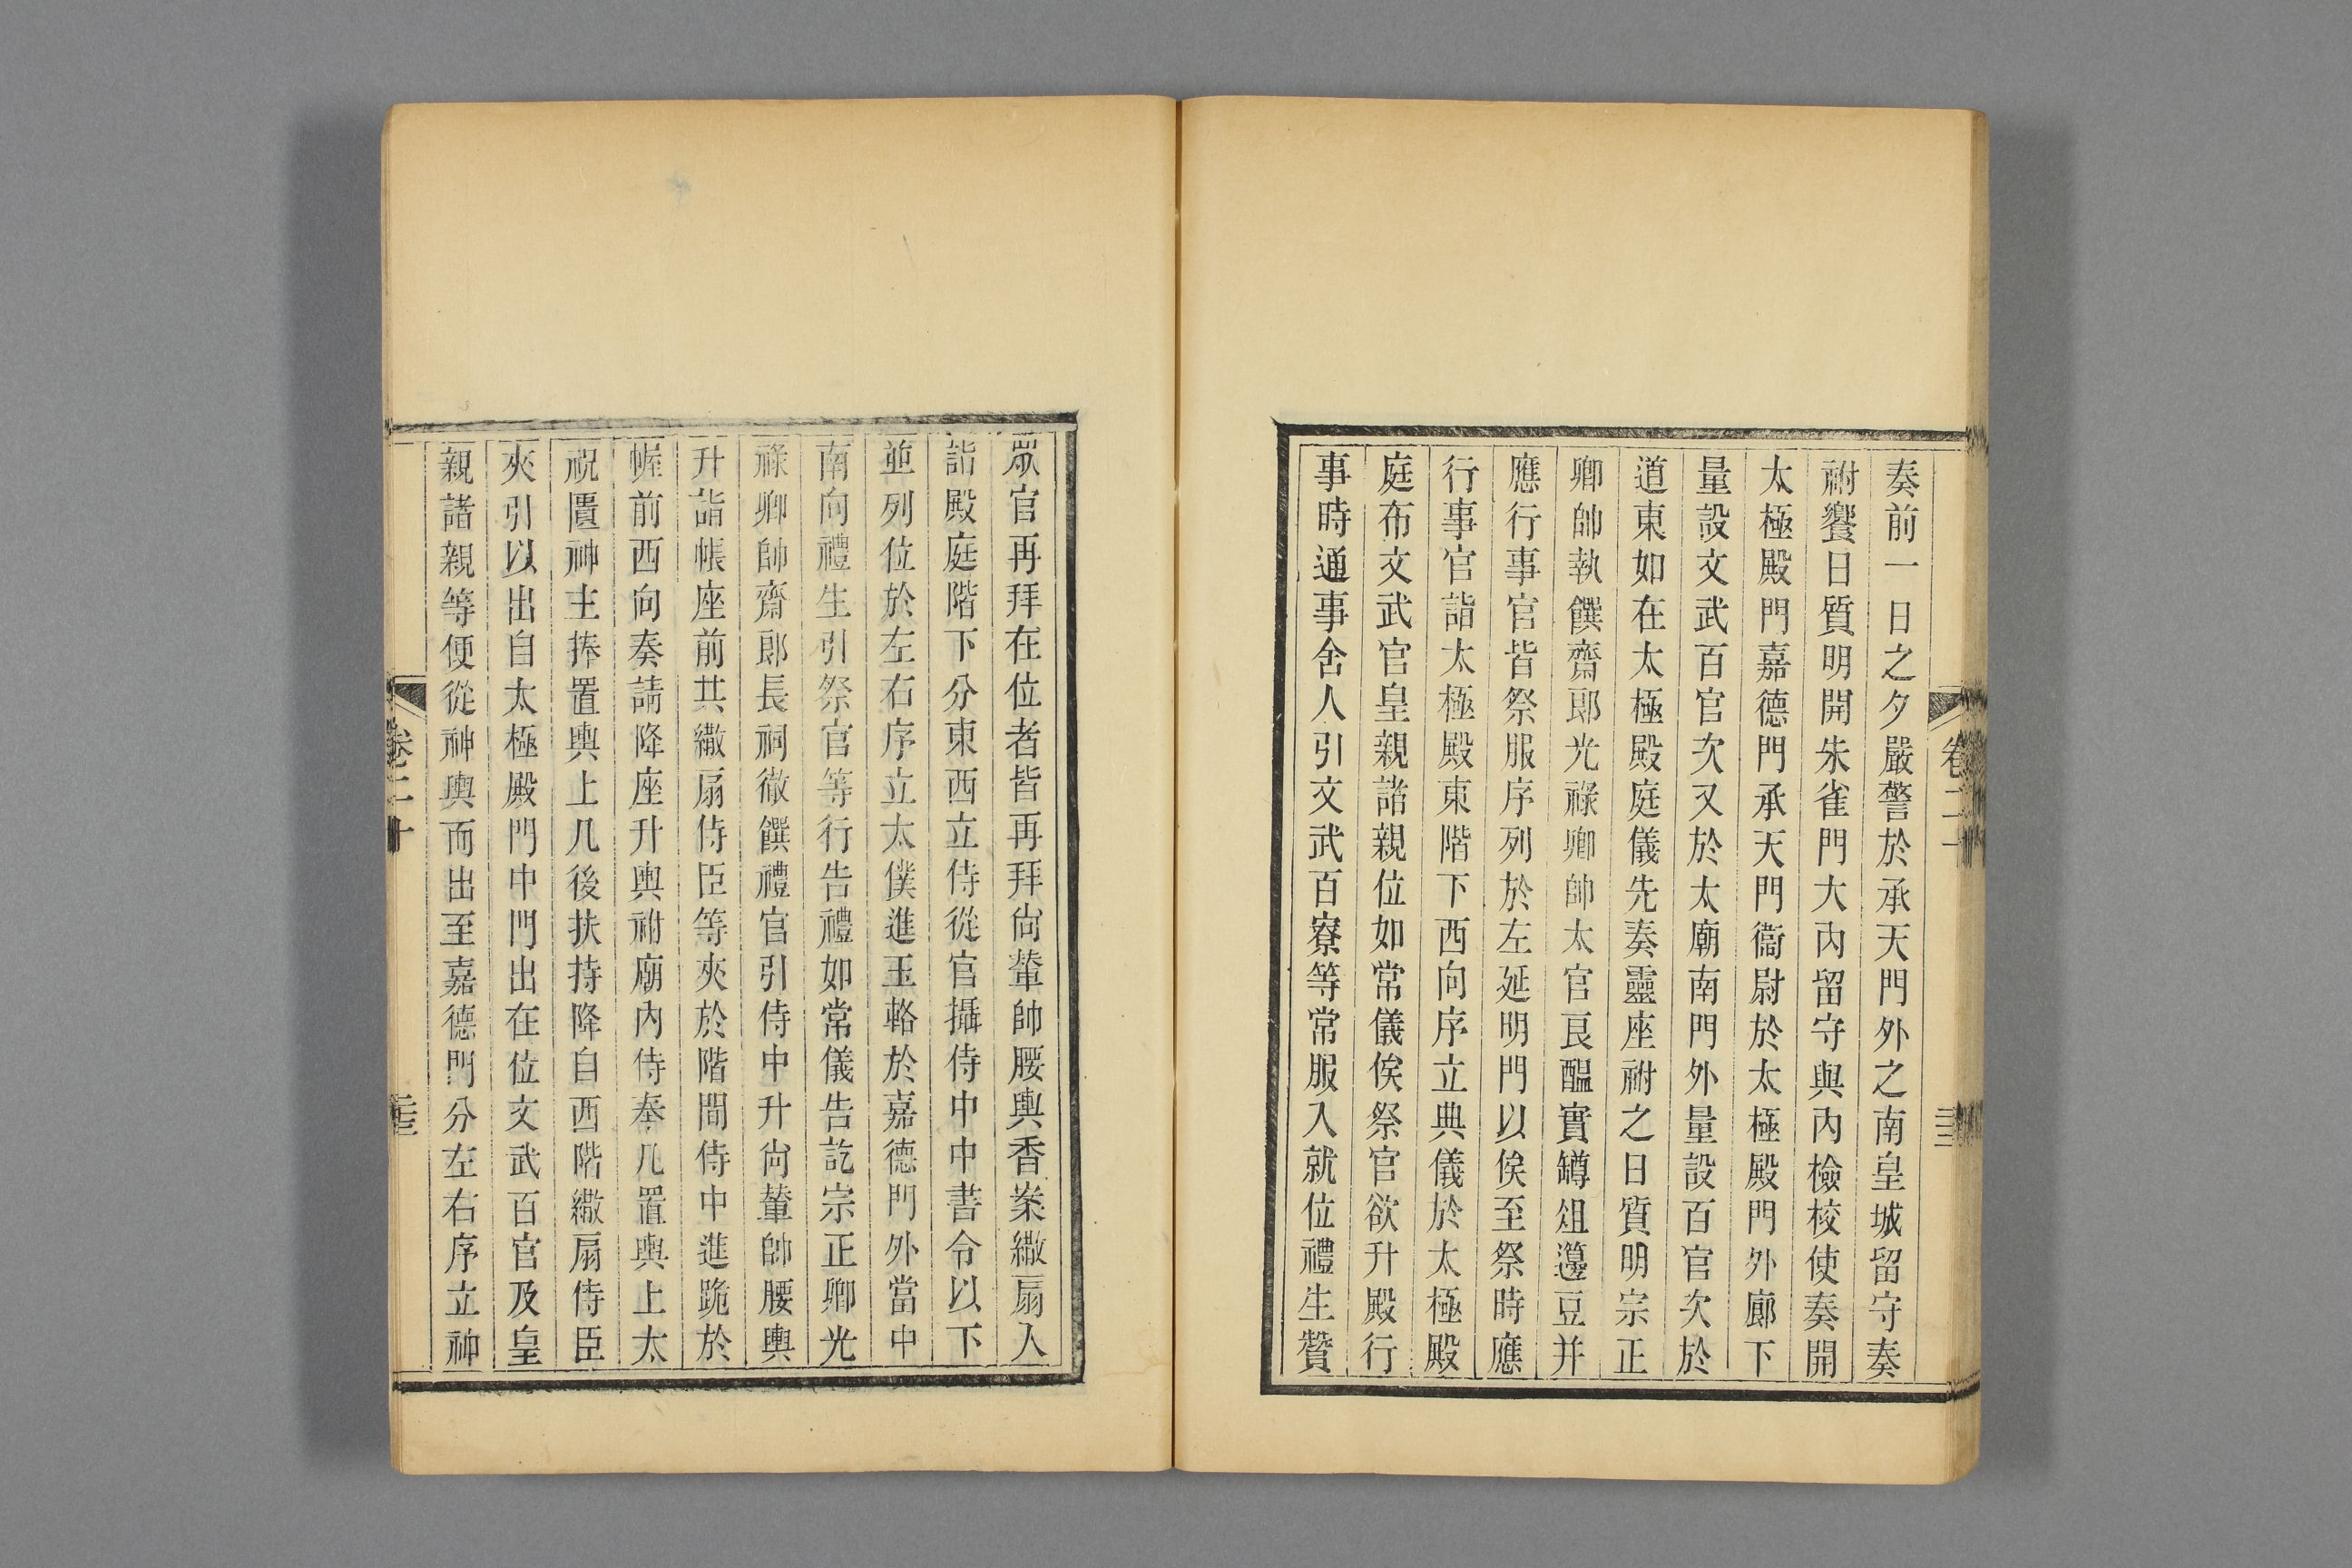 奏前一日之夕嚴警於承天門外之南皇城留守奏
祔饗日質明開朱雀門大內留守與內檢校使奏開
太極殿門嘉德門承天門衞尉於太極殿門外廊下
量設文武百官次又於太廟南門外量設百官次於
道東如在太極殿庭儀先奏靈座祔之日質明宗正
卿帥執饌齋郎光祿卿帥太官良醞實罇俎籩豆并
應行事官皆祭服序列於左延明門以俟至祭時應
行事官詣太極殿東階下西向序立典儀於太極殿
庭布文武官皇親諸親位如常儀俟祭官欲升殿行
事時通事舍人引文武百寮等常服入就位禮生贊
眾官再拜在位者皆再拜尙輦帥腰輿香案繖扇入
詣殿庭階下分東西立侍從官攝侍中中書令以下
並列位於左右序立太僕進玉輅於嘉德門外當中
南向禮生引祭官等行告禮如常儀告訖宗正卿光
祿卿帥齋郎長祠徹饌禮官引侍中升尙輦帥腰輿
升詣帳座前其繖扇侍臣等夾於階間侍中進跪於
幄前西向奏請降座升輿祔廟內侍奉几置輿上太
祝匱神主捧置輿上几後扶持降自西階繖扇侍臣
夾引以出自太極殿門中門出在位文武百官及皇
親諸親等便從神輿而出至嘉德門分左右序立神
卷二十